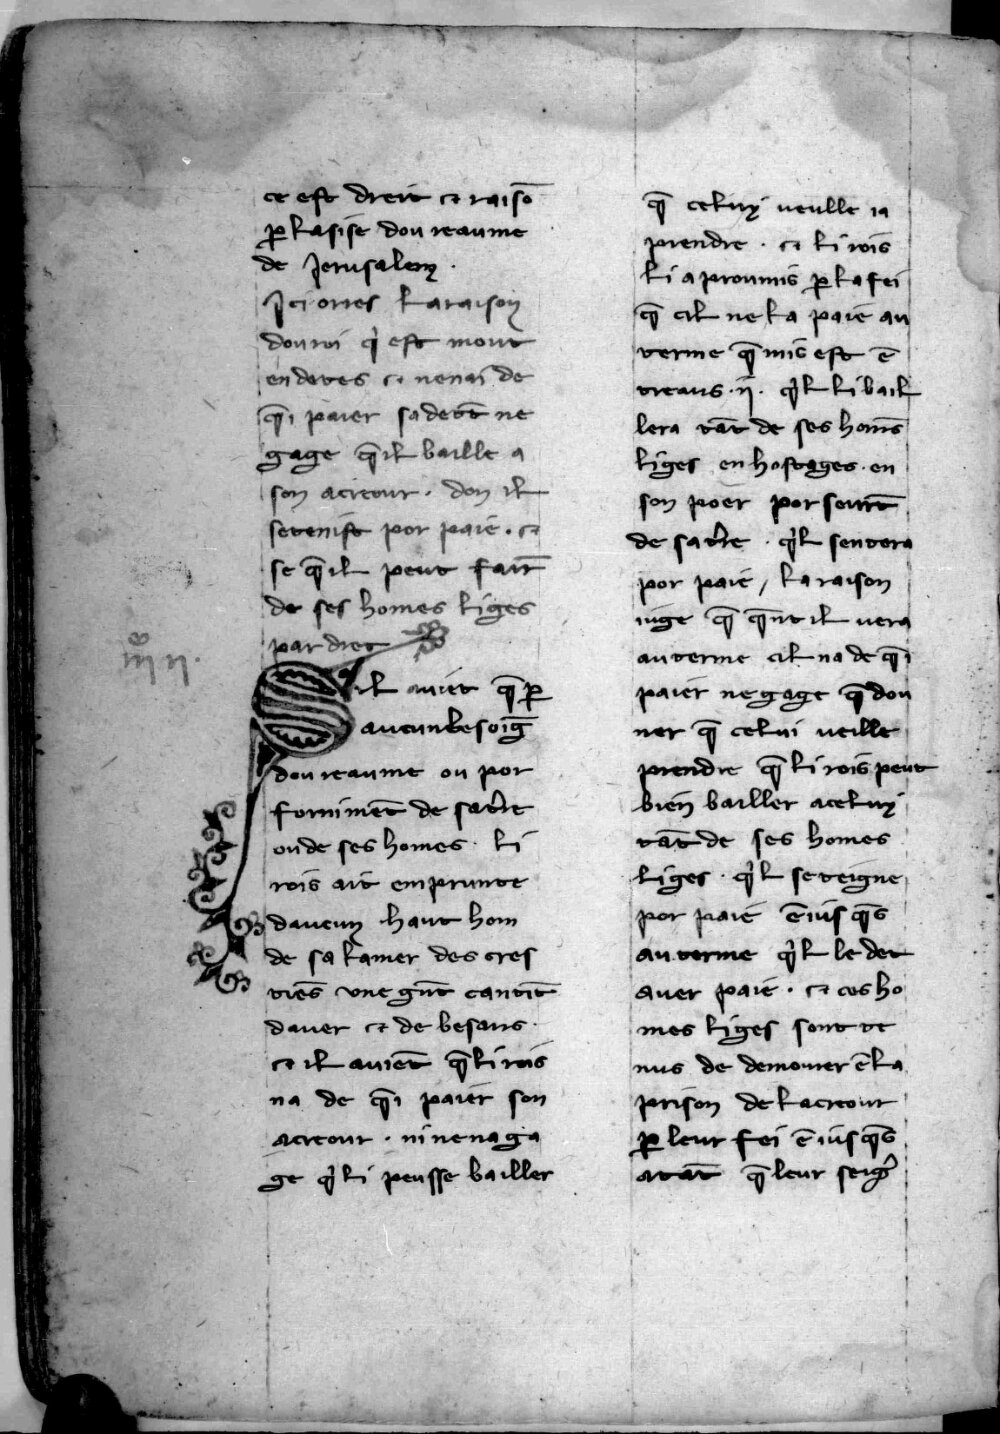 ce est dreit et raisō
ꝑ lasise dou reaume
de Jerusalem.
Jci orres la raison
dou roi qͥ est mout
endetes et nenai de
q̄i paier sa dett̄ ne
gage q̄ il baille a
son acreour. don il
se tenist por paie. et
se q̄ il peut fair̄
de ses homes liges
par dret
Sil auiēt q̄ ꝑ
aucun besoiḡ
dou reaume ou por
fornimēt de sa tͥre
ou de ses homes. li
rois ait emprunte
daucun haut hom
de sa lamer des cres
tiēs vne gn̄t cantit̄
dauer et de besans.
et il auiēt q̄ li rois
na de q̄i paier son
acreour. ni nena ga
ge qͥ li peusse bailler
q̄ celuy ueulle ia
prendre. et li rois
li a proumis ꝑ la fei
q̄ cil ne la paie au
terme q̄ mis est ē
treaus .ij. qͥl li bail
lera tāt de ses homs̄
liges en hostages. en
son poer por seurt̄
de sa tͥre. qͥl sentera
por paie / la raison
iuge q̄ q̄nt il uera
au terme cil na de q̄i
paier ne gage q̄ dou
ner q̄ celui ueille
prendre q̄ li rois peut
bien bailler a celuy
tāt de ses homes
liges. qͥl se teigne
por paie ē iusq̄s
au terme qͥl le det
auer paie. et ces ho
mes liges sont te
nus de demourer ē la
prison de lacreour
ꝑ leur fei ē iusq̄s
atāt q̄ leur seigͬ